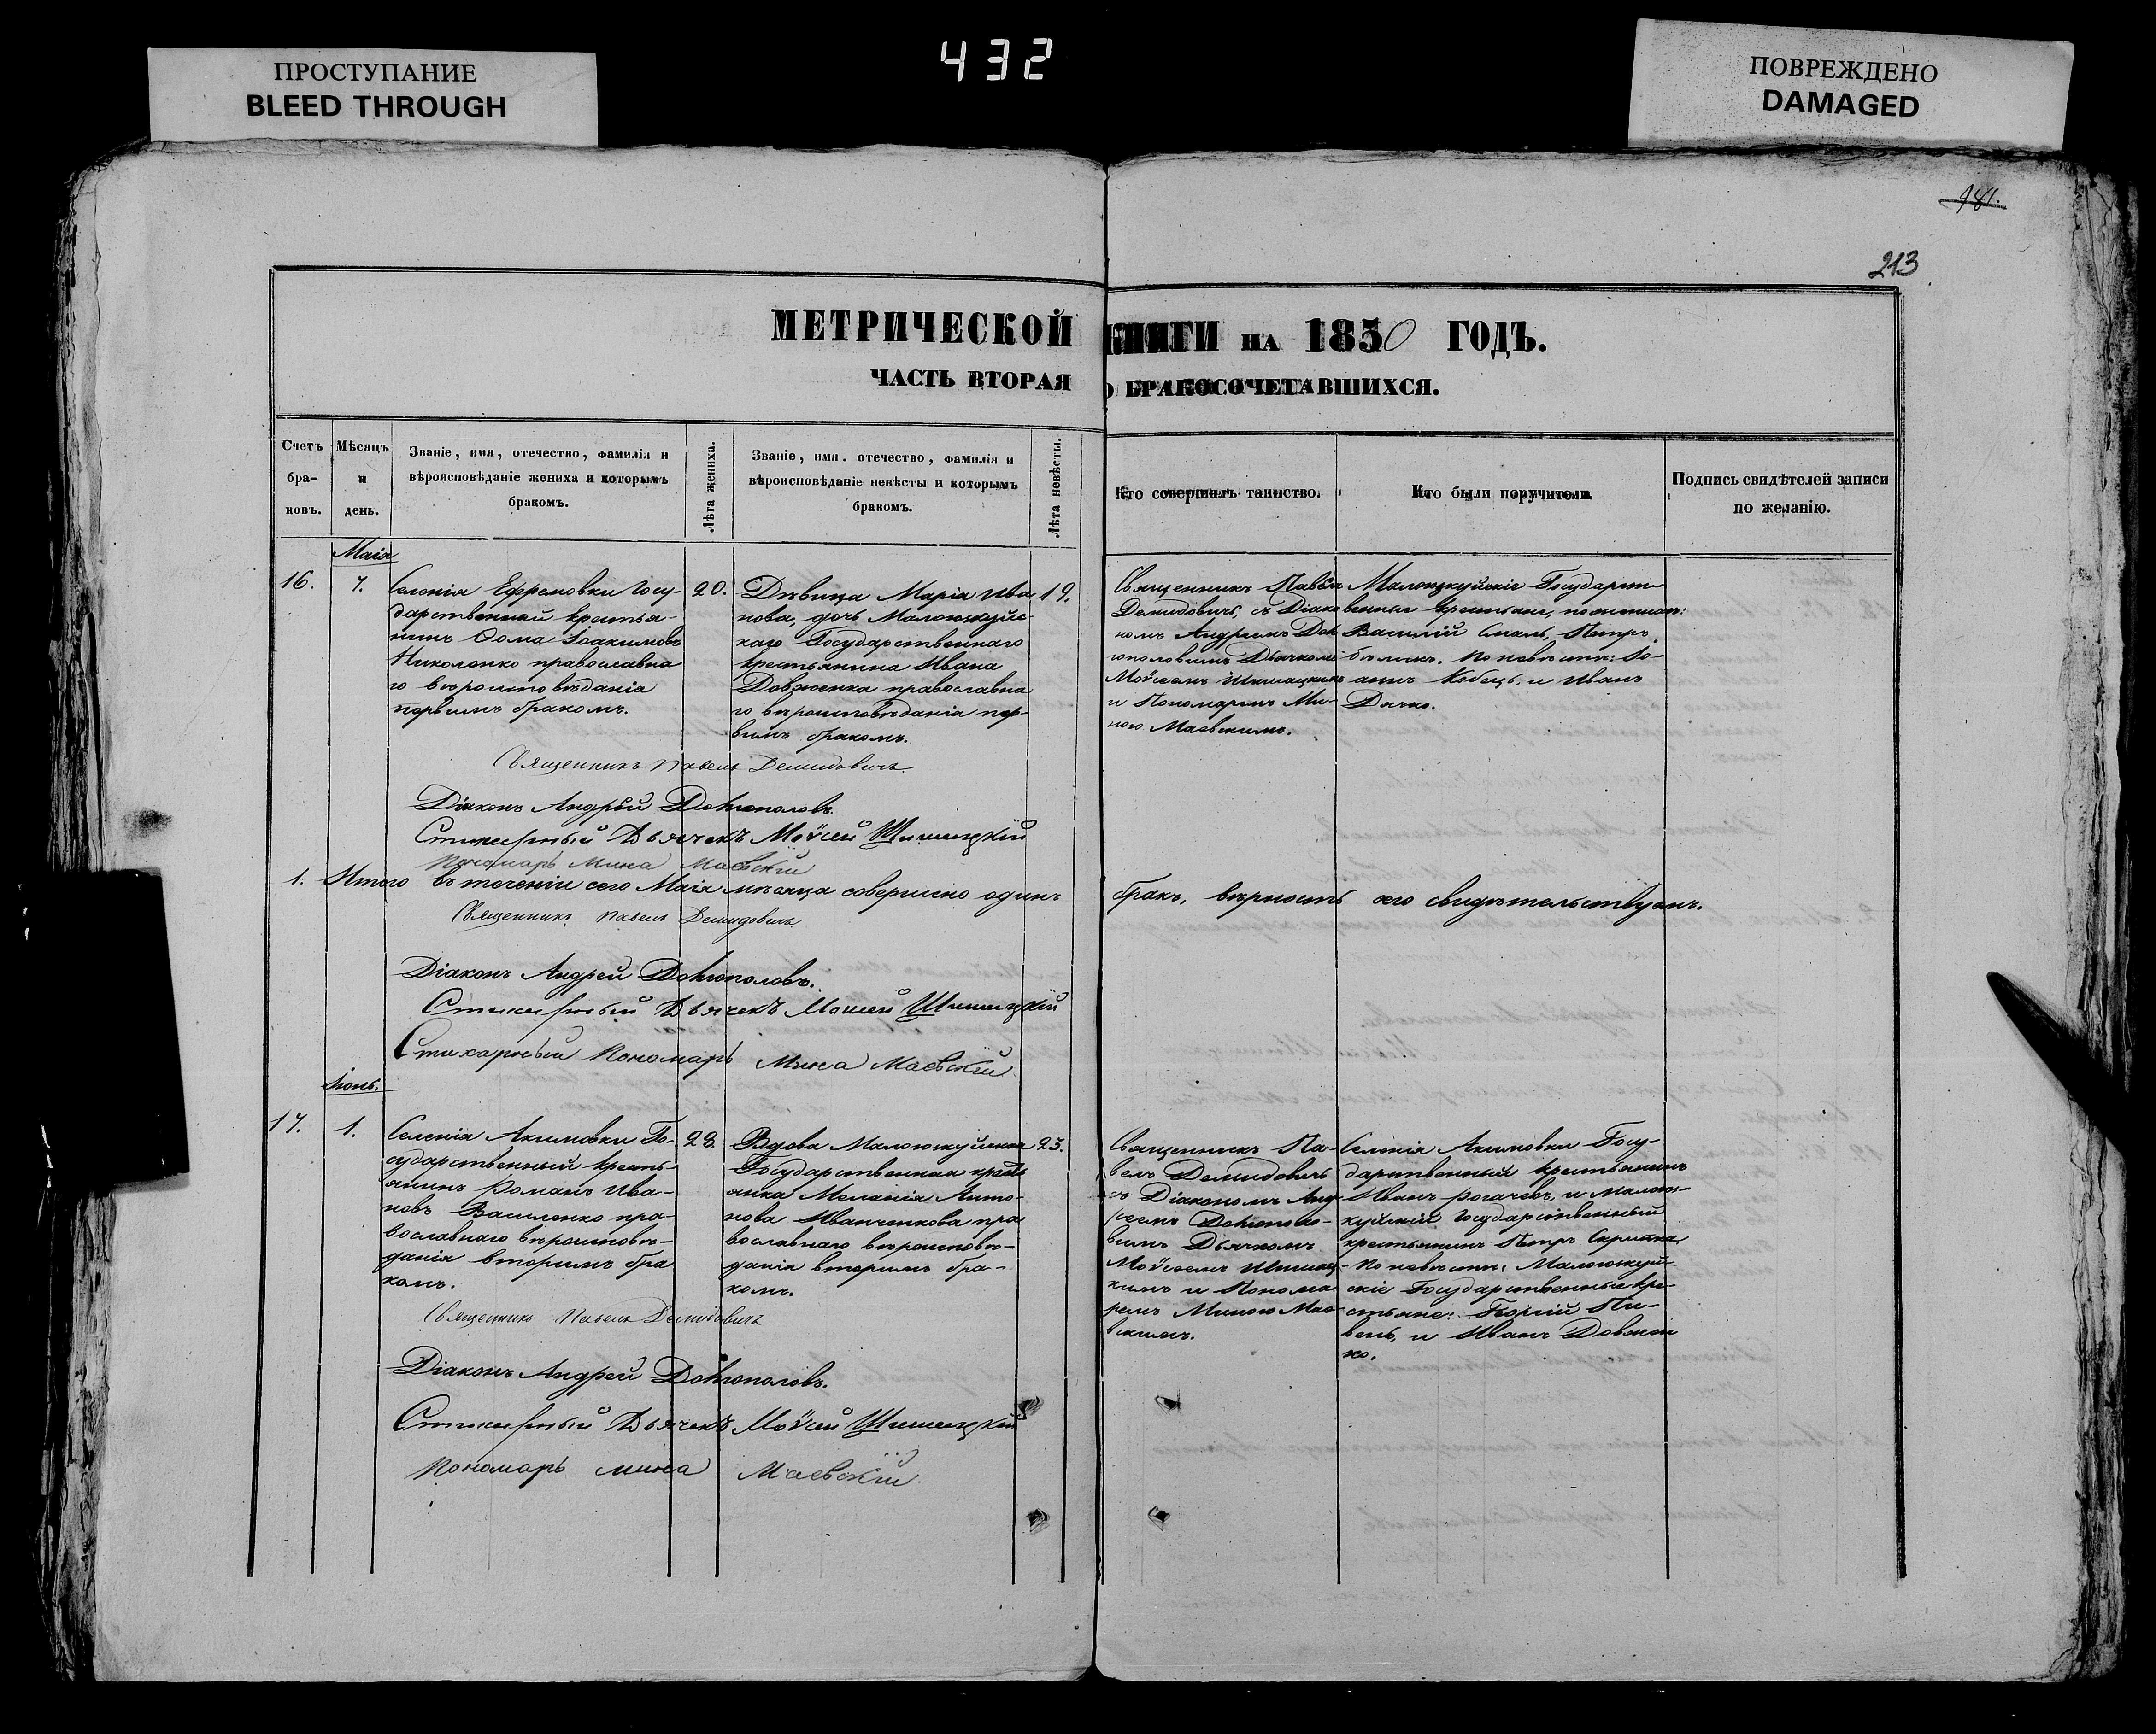 ПРОСТУПАНИЕ
BLEED THROUGH
432
ПОВРЕЖДЕНО
DAMAGED
981.
213
МЕТРИЧЕСКОЙ КНИГИ НА 1850 ГОДЪ.
ЧАСТЬ ВТОРАЯ О БРАКОСОЧЕТАВШИХСЯ.
Счетъ бра-ковъ.
Мѣсяцъ и день.
Званіе, имя, отечество, фамилія и
вѣроисповѣданіе жениха и которымъ
бракомъ.
Лѣта жениха.
Званіе, имя. отечество, фамилія и
вѣроисповѣданіе невѣсты и которымъ
бракомъ.
Лѣта невѣсты.
Кто совершалъ таинство.
Кто были поручители.
Подпись свидѣтелей записи
по желанію.
Маія
16.
7.
Селенія Ефремовки Госу-
дарственный крестья-
нинъ Ѳома Іоакимовъ
Николенко православна
го вѣроисповѣданія
первымъ бракомъ.
20.
Дѣвица Марія Ива
нова, дочь
каго Государственнаго
крестьянина Ивана
Довженка православна
го вѣроисповѣданія пер-
вымъ бракомъ.
19.
Священникъ Павелъ
Демидовичъ, съ Діако
номъ Андреемъ Дов
гополовымъ Дьячкомъ
Моѵсеемъ Шишацкимъ
и Пономаремъ Ми-
ною Маевскимъ.
Государст
венные крестьяне, по женихѣ:
Василій Петръ
По невѣстѣ: Іо-
аннъ Кобецъ, и Иванъ
Дячко.
Священникъ Павелъ Демидовичъ
Діаконъ Андрей Довгополовъ.
Стихарный Дьячекъ Моѵсей Шишацкій
Пономарь Мина Маевскій
1. Итого въ теченіи сего Маія мѣсяца совершено одинъ бракъ, вѣрность сего свидѣтельствуемъ.
Священникъ Павелъ Демидовичъ
Діаконъ Андрей Довгополовъ.
Стихарный Дьячекъ Моисей Шишацкій
Стихарный Пономарь Мина Маевскій
Іюнь.
17.
1.
Селенія Акимовки Го-
сударственный кресть-
янинъ Романъ Ива-
новъ Василенко пра-
вославнаго вѣроисповѣ-
данія вторымъ бра
комъ.
28.
Вдова
Государственная кресть
янка Меланія Анто-
нова Иванченкова пра
вославнаго вѣроисповѣ-
данія вторымъ бра-
комъ.
23.
Священникъ Па-
велъ Демидовичъ
съ Діакономъ Анд-
реемъ Довгополо-
вымъ Дьячкомъ
Моѵсеемъ Шишац-
кимъ и Понома
ремъ Миною Мае-
вскимъ.
Селенія Акимовки Госу-
дарственный крестьянинъ
Иванъ Рогачевъ, и
Государственный
крестьянинъ Петръ Скрипка,
По невѣстѣ:
скіе Государственные кре-
стьяне: Пи-
вень, и Иванъ Довжен
ко.
Священникъ Павелъ Демидовичъ
Діаконъ Андрей Довгополовъ.
Стихарный Дьячекъ Моѵсей Шишацкій
Пономарь Мина Маевскій